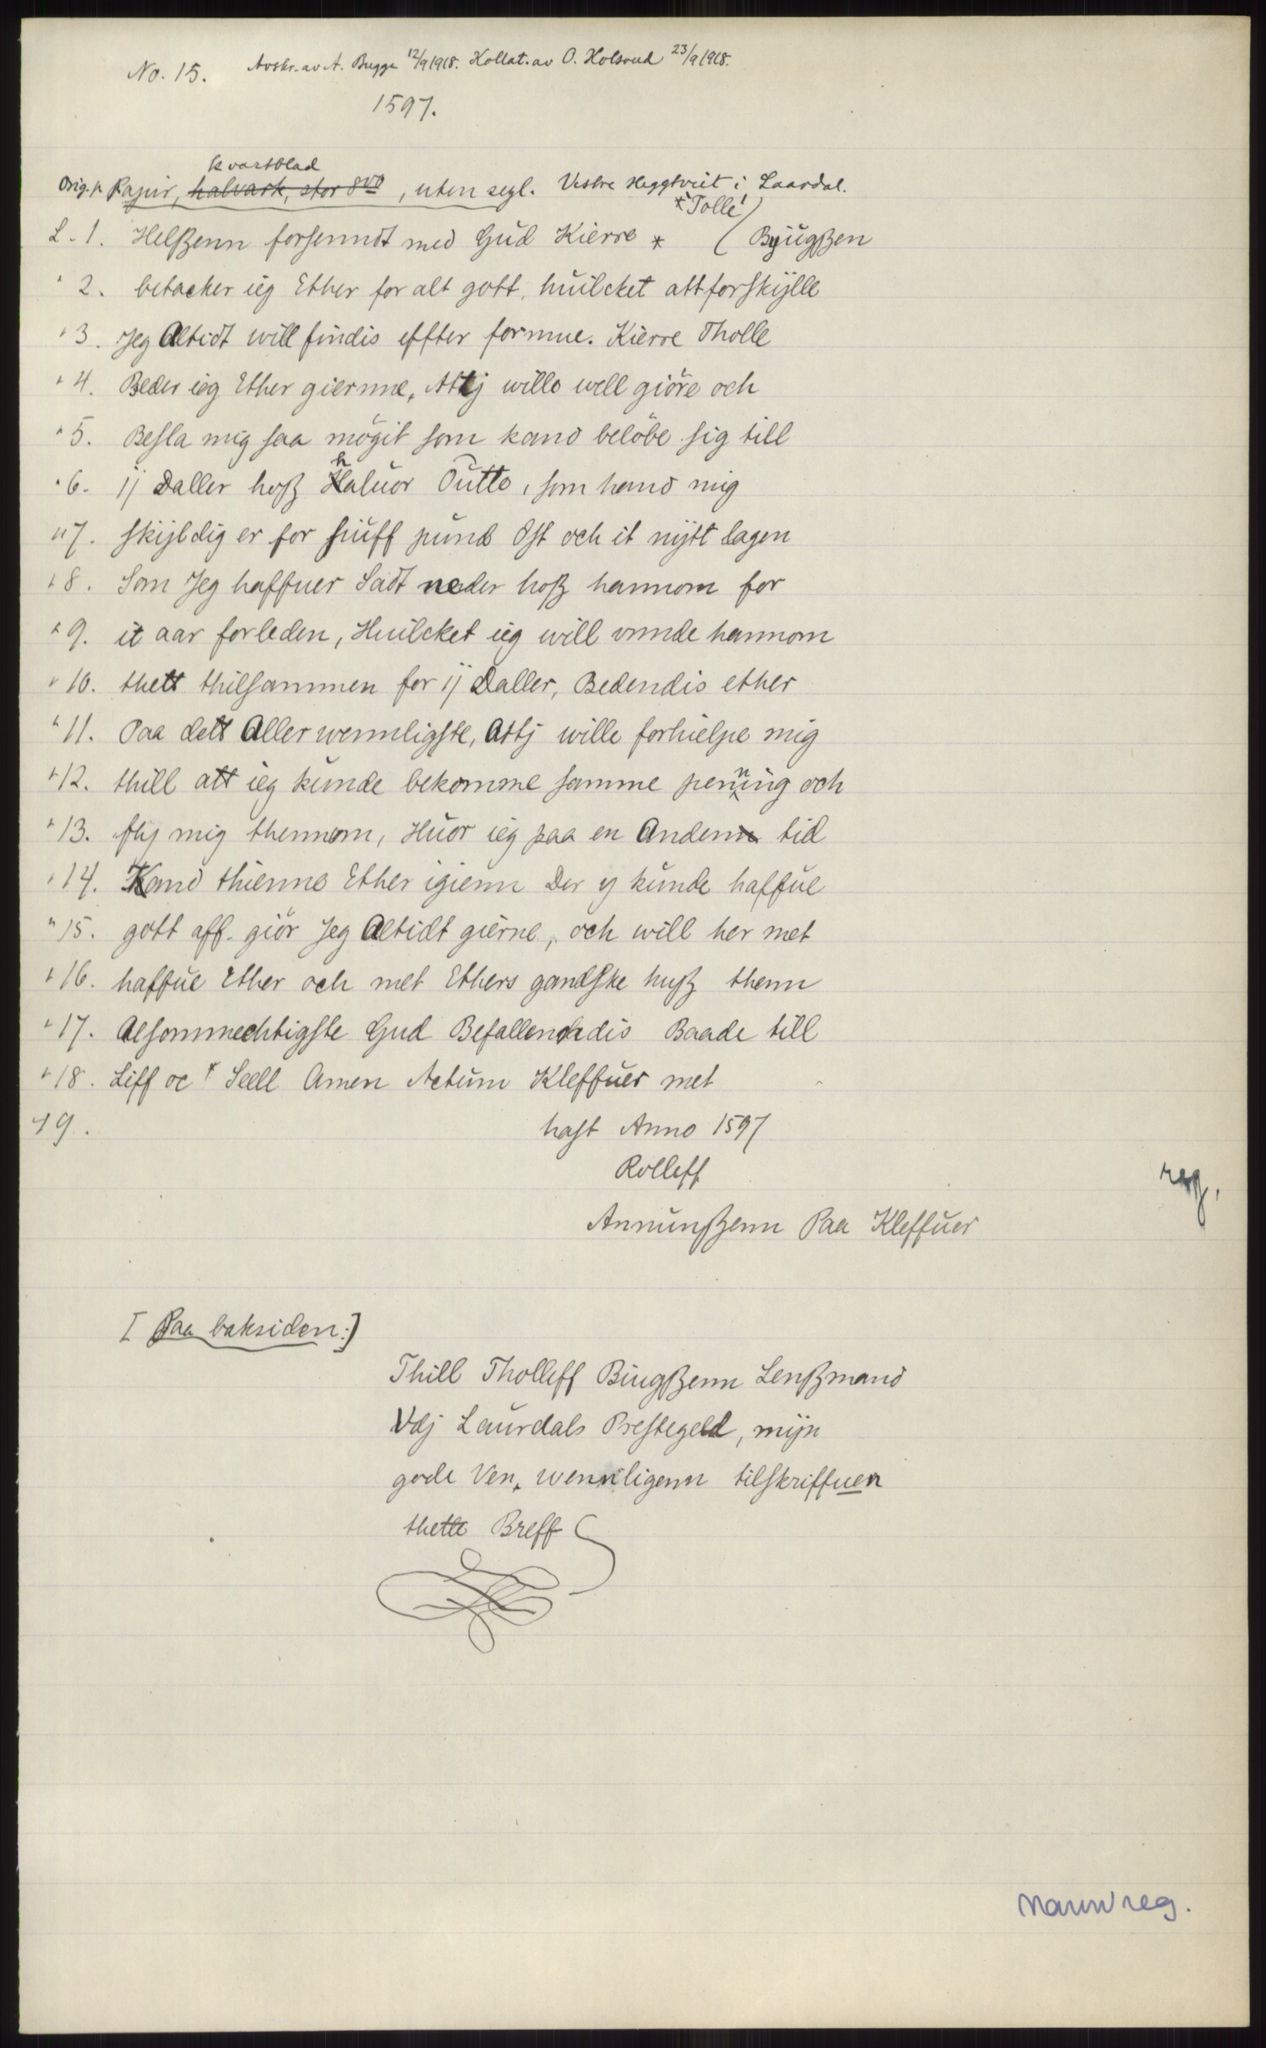 No. 15. Avskr. av A. Bugge 12/9 1918. Kollat. av O. Holsrud 23/9 1918.
1597.
kvartblad
Orig. p. Papir, halvark, stor 8vo, uten segl. Vestre Heggtveit i Laardal.
* Tolle
L. 1. Helßenn forsenndt med Gud Kierre * ( Byugßen
" 2. betacker ieg Ether for alt gott, huilcket att forskylle
" 3. Jeg Altidt will findis effter formue. Kierre Tholle
" 4. Beder ieg Ether giernne, Attj wille well giöre och
" 5. Besla mig saa mögit som kand belöbe sig till
" 6. ij Daller hoß haluor Outte, som hand mig
" 7. skijldig er for siuff pund Ost och it nytt lagen
" 8. Som Jeg haffuer Sadt neder hoß hannom for
" 9. it aar forleden, Huilcket ieg will vnnde hannom
" 10. thett thilsammen for ij Daller, Bedendis ether
" 11. Paa dett Aller wennligste, Attj wille forhielpe mig
" 12. thill att ieg kunde bekomme samme penning och
" 13. flij mig thennom, Huor ieg paa en Anden tid
" 14. Kand thienne Ether igienn Der y kunde haffue
" 15. gott aff. giör Jeg Altidt gierne, och will her met
" 16. haffue Ether och met Ethers gandske huß thenn
" 17. Alsommechtigste Gud Befallendis Baade till
" 18. Liff oc Seell Amen Actum Kleffuer met
19. hast Anno 1597
Rolleff
reg.
Annunßenn Paa Kleffuer
[Paa baksiden:]
Thill Tholleff Biugßenn Lenßmand
Vdj Laurdals Prestegeld, mijn
gode Ven, wennligenn tilskriffuen
thette Breff
Navnreg.